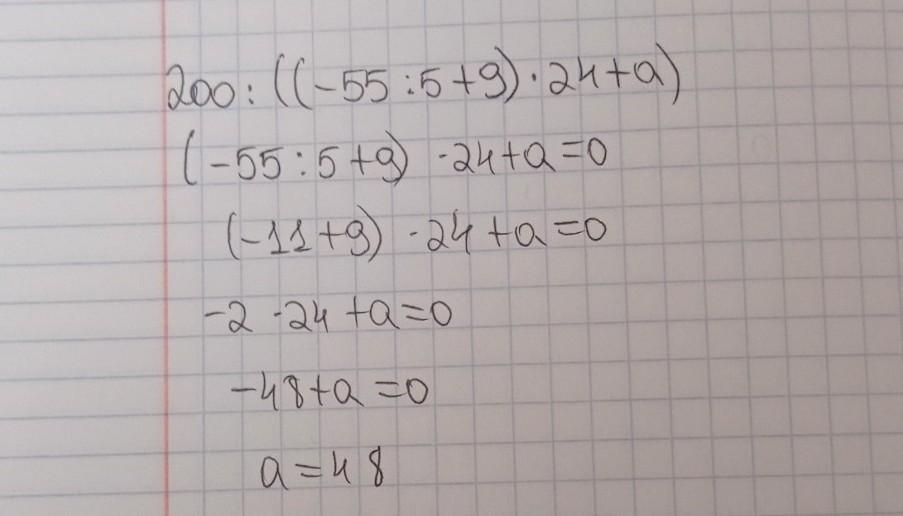 200:((-55:5+9)·24+a)
(-55:5+9) ·24+a=0
(-11+9) ·24+a=0
-2 ·24+a=0
-48+a=0
a=48